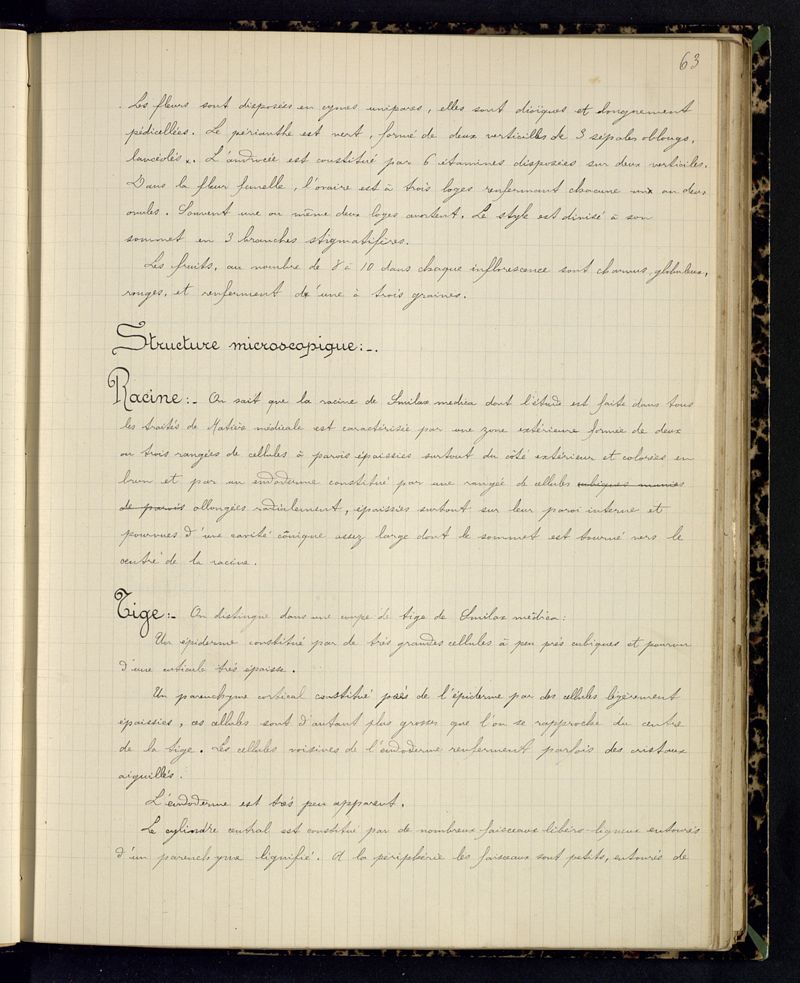 63
Les fleurs sont disposées en cymes unipares, elles sont dioïques et longuement
pédicellées. Le périanthe est vert, formé de deux verticilles de 3 sépales oblongs,
lancéolés. L'androcée est constitué par 6 étamines disposées sur deux verticiles.
Dans la fleur femelle, l'ovaire est à trois loges renfermant chacune un ou deux
ovules. Souvent une ou même deux loges avortent. Le style est divisé à son
sommet en 3 branches stigmatifères.
Les fruits, au nombre de 8 à 10 dans chaque inflorescence sont charnus, globuleux,
rouges, et renferment d'une à trois graines.
Structure microscopique:-.
Racine:- On sait que la racine de Smilax medica dont l'étude est faite dans tous
les traités de Matière médicale est caractérisée par une zone extérieure formée de deux
ou trois rangées de cellules à parois épaissies surtout du côté extérieur et colorées en
brun et par un endoderme constitué par une rangée de cellules cubiques munies
de parois allongées radialement, épaissies surtout sur leur paroi interne et
pourvues d'une cavité cônique assez large dont le sommet est tourné vers le
centre de la racine.
Tige:- On distingue dans une coupe de tige de Smilax médica:
Un épiderme constitué par de très grandes cellules à peu près cubiques et pourvu
d'une cuticule très épaisse.
Un parenchyme cortical constitué près de l'épiderme par des cellules légèrement
épaissies, ces cellules sont d'autant plus grosses que l'on se rapproche du centre
de la tige. Les cellules voisines de l'endoderme renferment parfois des cristaux
aiguillés.
L'endoderme est très peu apparent.
Le cylindre central est constitué par de nombreux faisceaux libéro-ligneux entourés
d'un parenchyme lignifié. A la périphérie les faisceaux sont petits, entourés de